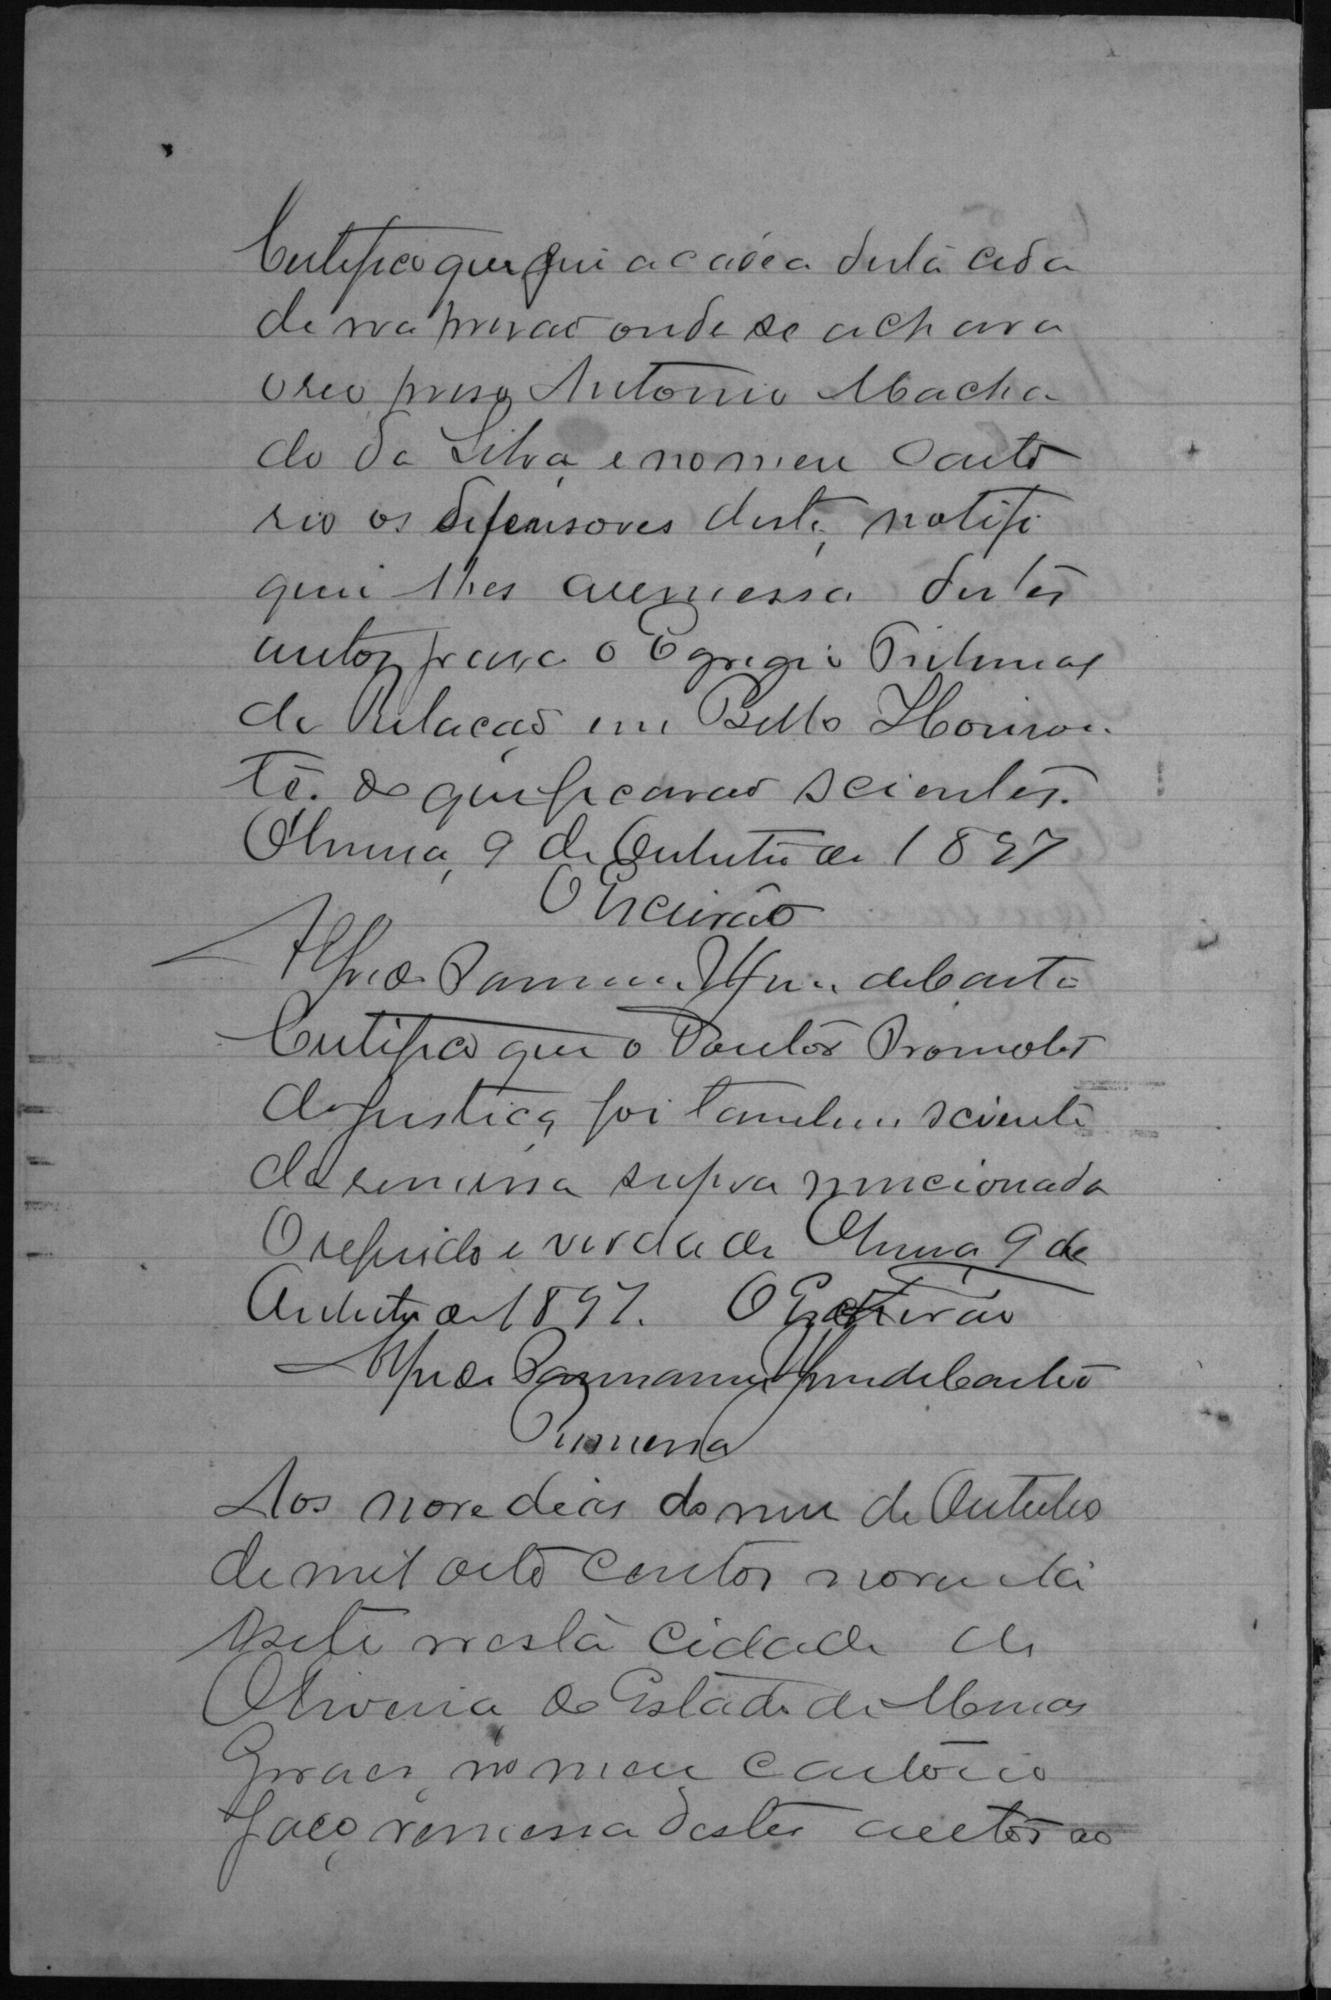 Certifico que fui a cadea desta cida
de na prisaõ onde se achava
o reo preso Antonio Macha
do da Silva, e no meu Carto
rio os defensores deste, notifi
quei lhes a remessa destes
autos para o Egregio Tribunal
da Relacaõ em Bello Horison
te. do que ficaraõ scientes.
Oliveira, 9 de Outubro de 1897
O Escrivão
Alfredo de Castro
Certifico que o Doutor Promotor
da Justiça, foi tambem sciente
da remessa supra mencionada
O referido e verdade Oliveira, 9 de
Outubro de 1897. O Escrivão
Alfredo de Castro
Remessa
Aos nove dias do mez de Outubro
de mil oito centos noventa
e sete nesta cidade de
Oliveira do Estado de Minas
Geraes, no meu cartorio
faço remessa destes autos ao